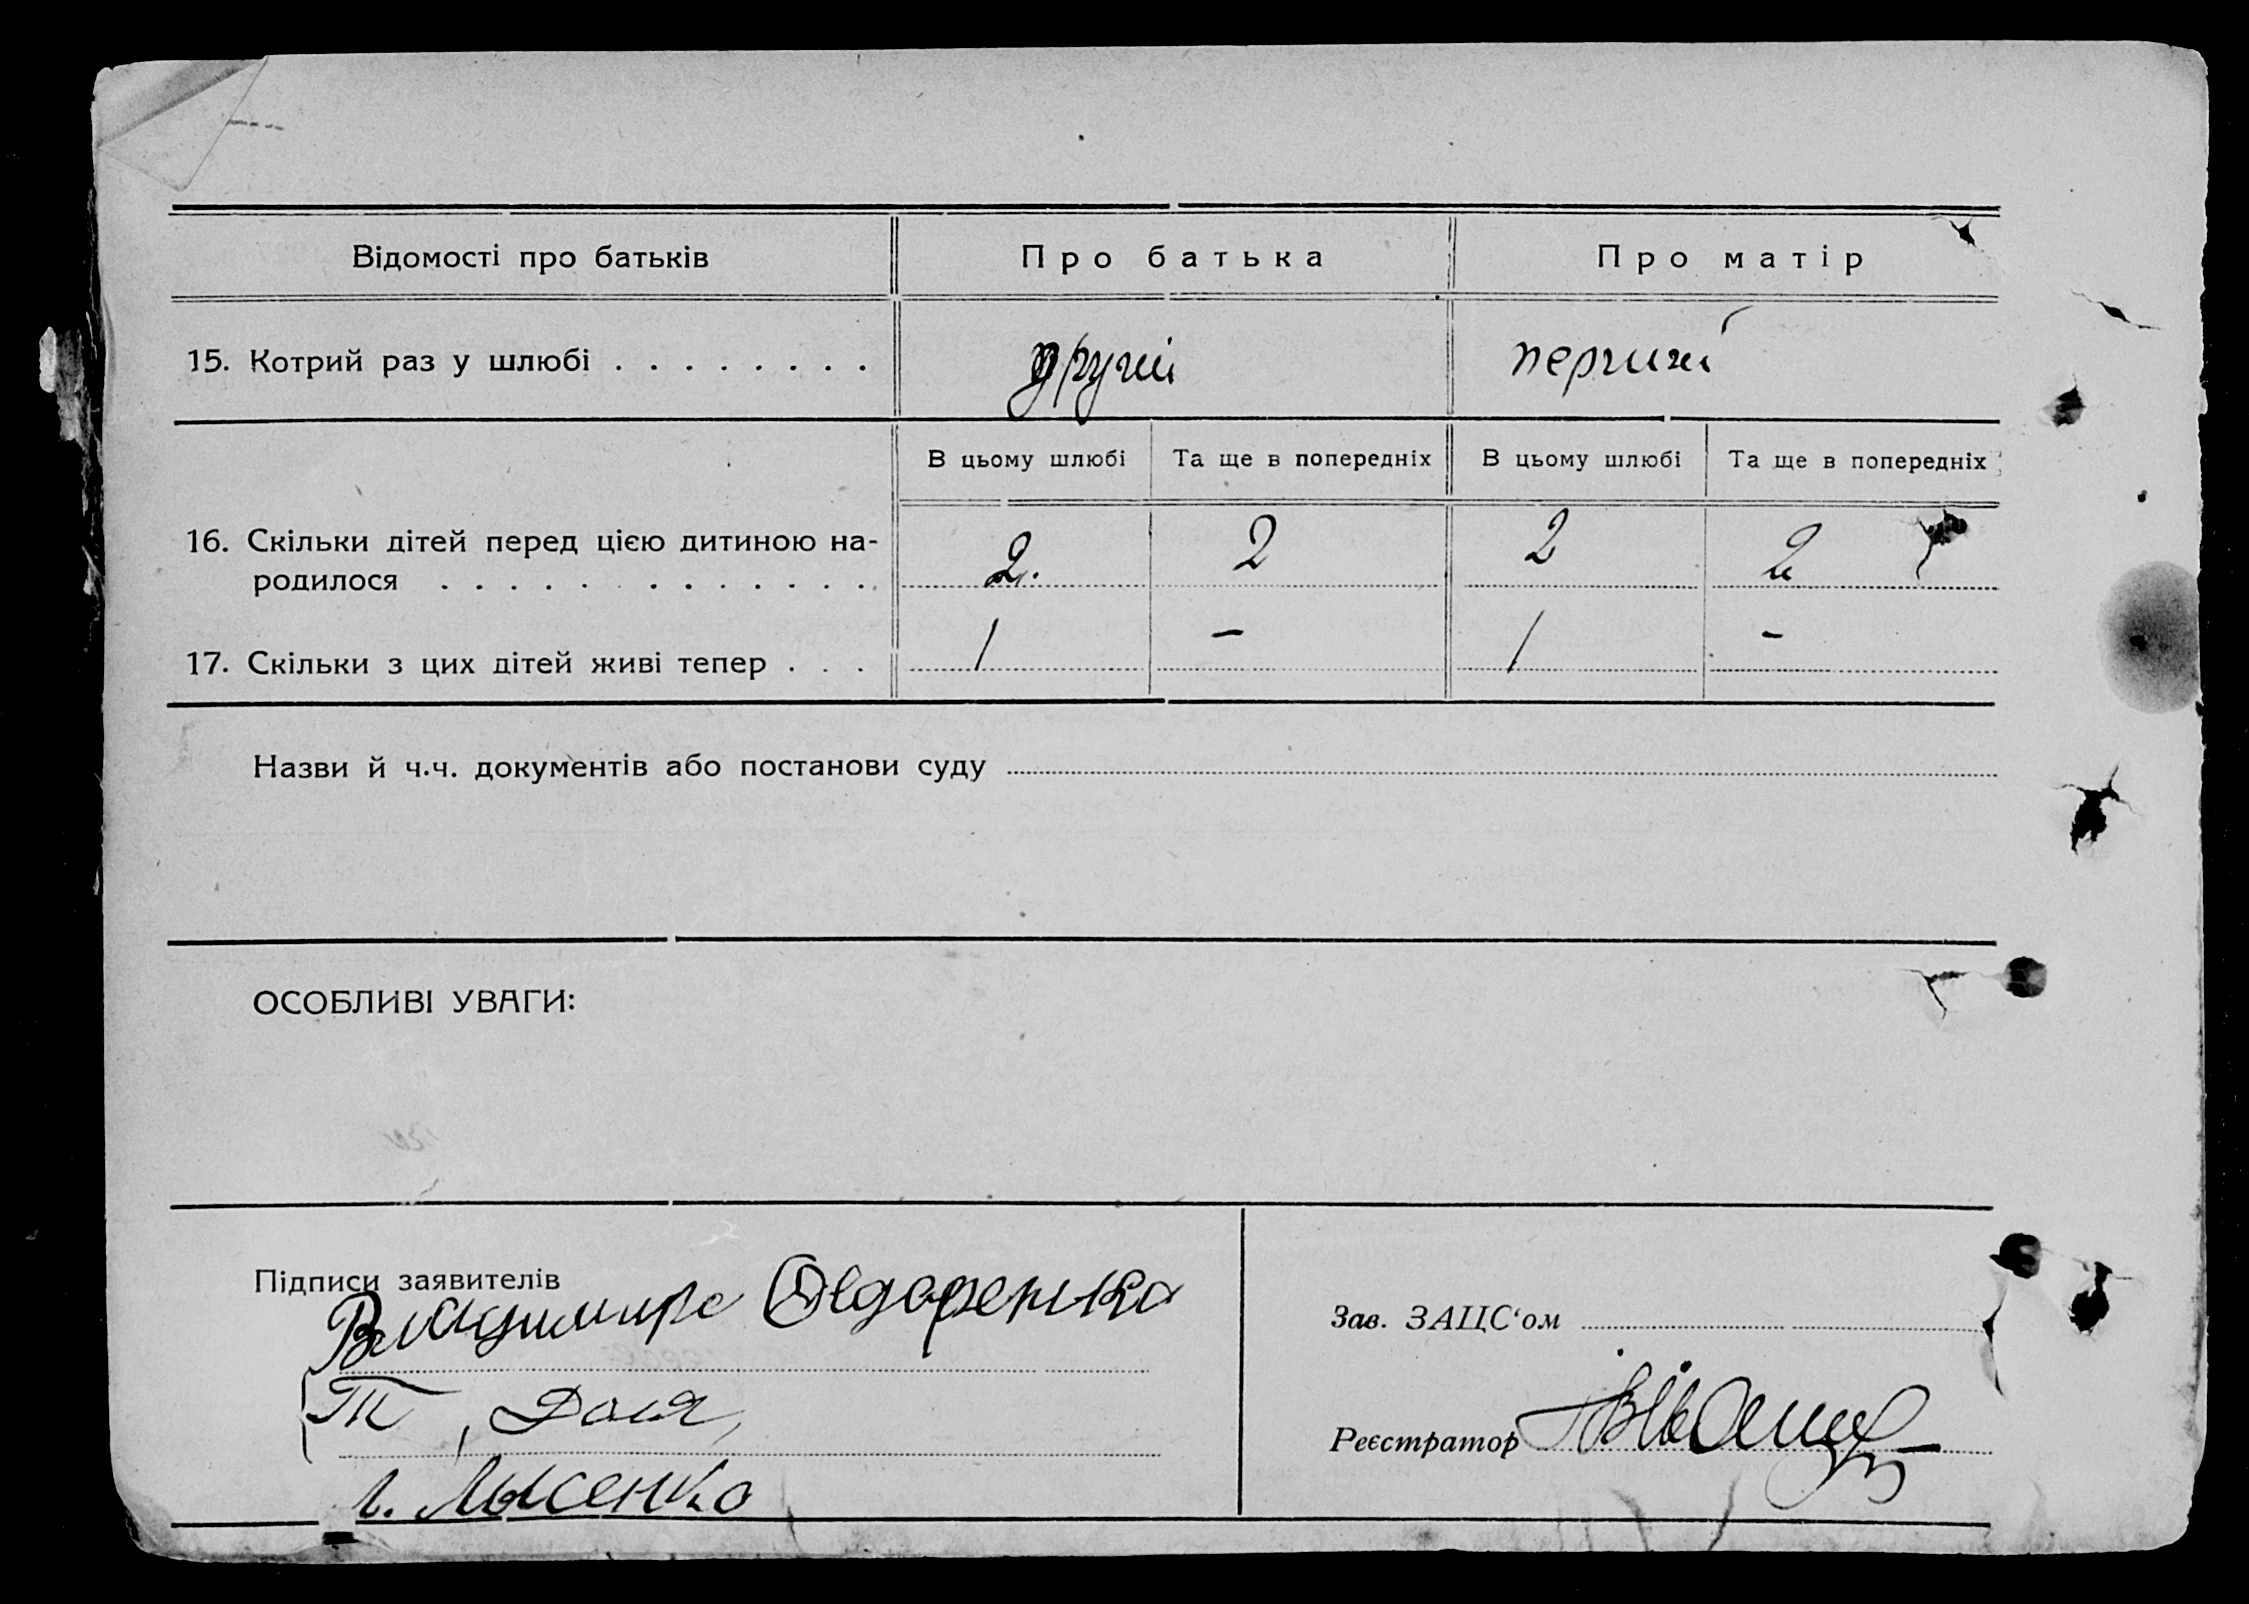 Відомості про батьків Про батька Про матір
15. Котрий раз у шлюбі . . . . . . . . другий перший
В цьому шлюбі Та ще в попередніх В цьому шлюбі Та ще в попередніх
16. Скільки дітей перед цією дитиною на-
родилося . . . . . . . . . . . . 2. 2 2 2
17. Скільки з цих дітей живі тепер . . . 1 - 1 -
Назви й ч.ч. документів або постанови суду
ОСОБЛИВІ УВАГИ:
Підписи заявителів
Федоренко
Т, Доля,
Лысенко
Зав. ЗАЦС‘ом
Реєстратор